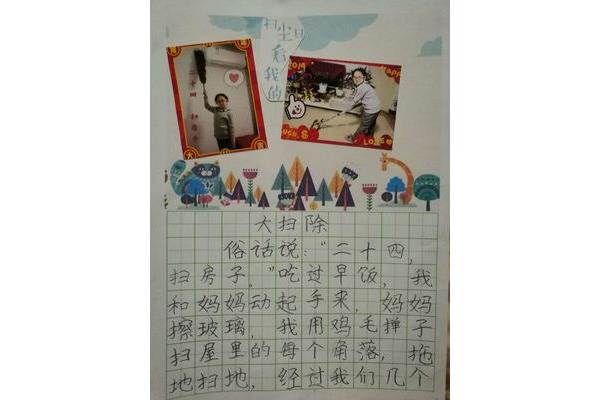 扫尘日
看
我
的
2019
二十四
大扫除
俗话说:“二十四,
扫房子,”吃过早饭,我
和妈妈动起手来,妈妈
擦玻璃,我用鸡毛掸子
扫屋里的每个角落,拖
地扫地,经过我们几个